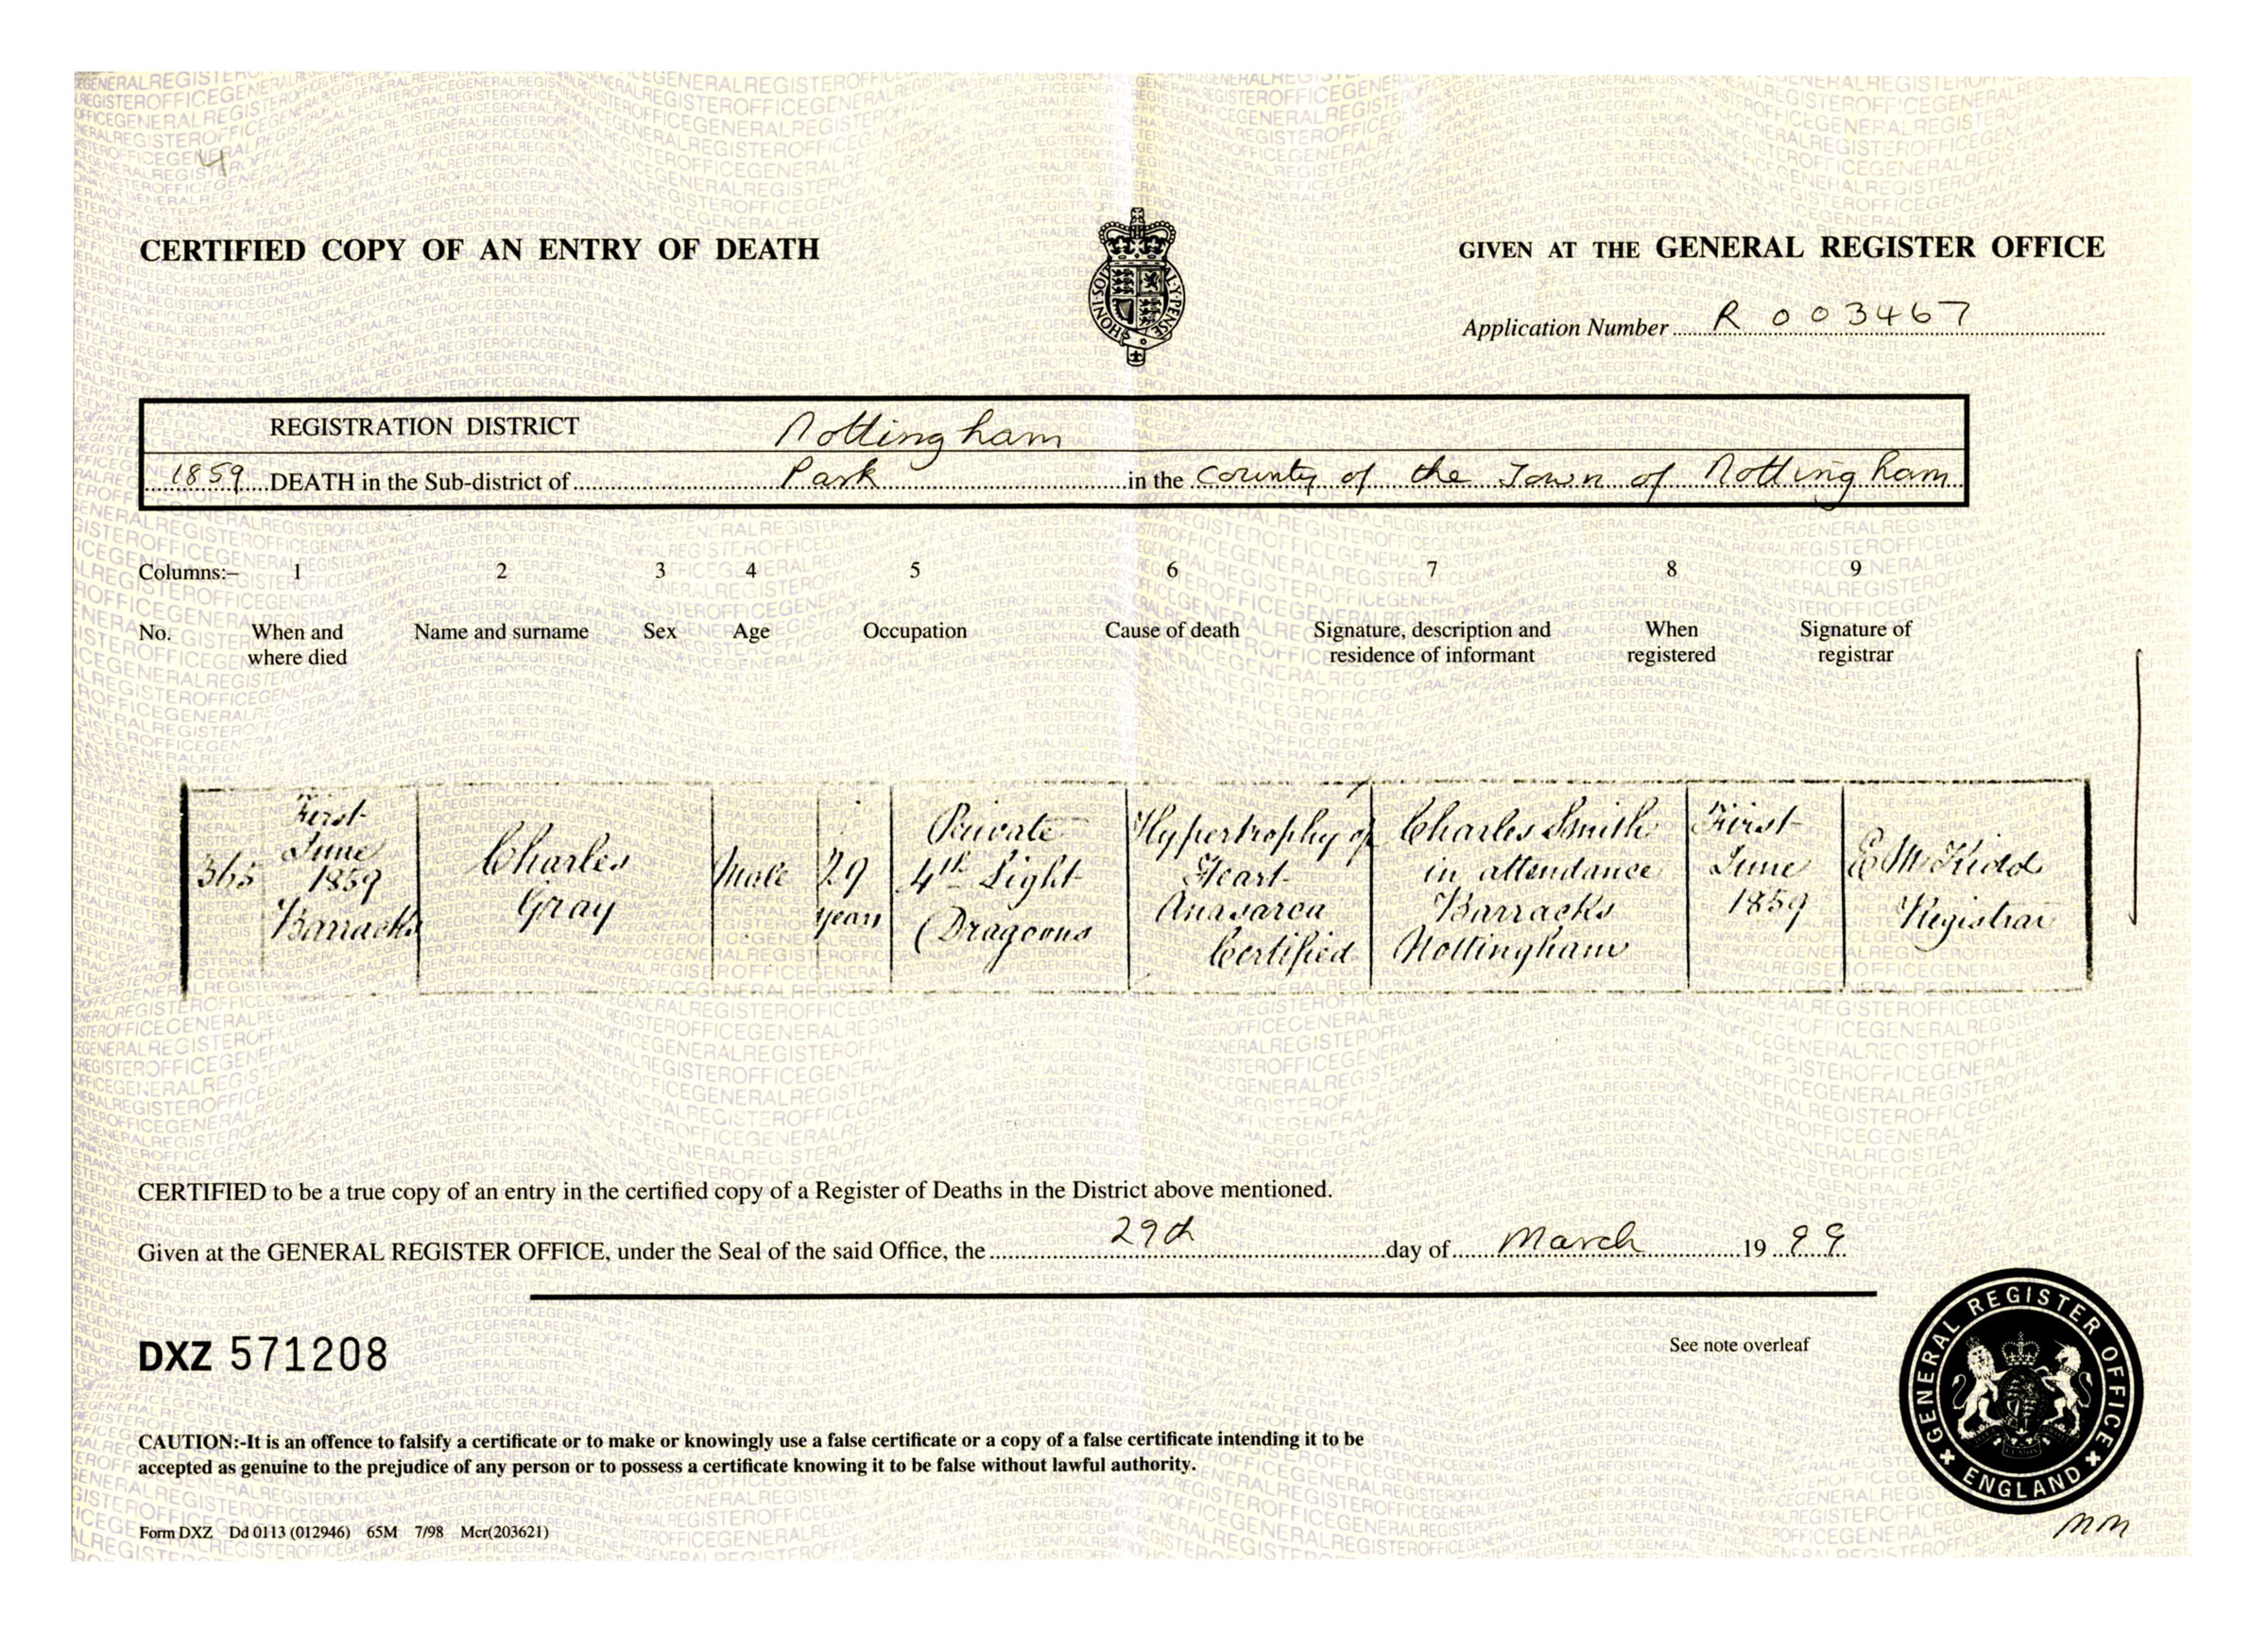 CERTIFIED COPY OF AN ENTRY OF DEATH
GIVEN AT THE GENERAL REGISTER OFFICE
Application Number R 003467
REGISTRATION DISTRICT Nottingham
1859 DEATH in the Sub-district of Park in the County of the Town of Nottingham
Columns:– 1 2 3 4 5 6 7 8 9
No. When and where died Name and surname Sex Age Occupation Cause of death Signature, description and residence of informant When registered Signature of registrar
365
First
June
1859
Barracks
Charles
Gray
Male
29
years
Private
4th Light
Dragoons
Hypertrophy of
Heart
Anasarca
Certified
Charles Smith
in attendance
Barracks
Nottingham
First
June
1859
Kidd
Registrar
CERTIFIED to be a true copy of an entry in the certified copy of a Register of Deaths in the District above mentioned.
Given at the GENERAL REGISTER OFFICE, under the Seal of the said Office, the 29th day of March 19 99
DXZ 571208
See note overleaf
GENERAL REGISTER OFFICE
ENGLAND
CAUTION:-It is an offence to falsify a certificate or to make or knowingly use a false certificate or a copy of a false certificate intending it to be
accepted as genuine to the prejudice of any person or to possess a certificate knowing it to be false without lawful authority.
Form DXZ Dd 0113 (012946) 65M 7/98 Mcr(203621)
MM